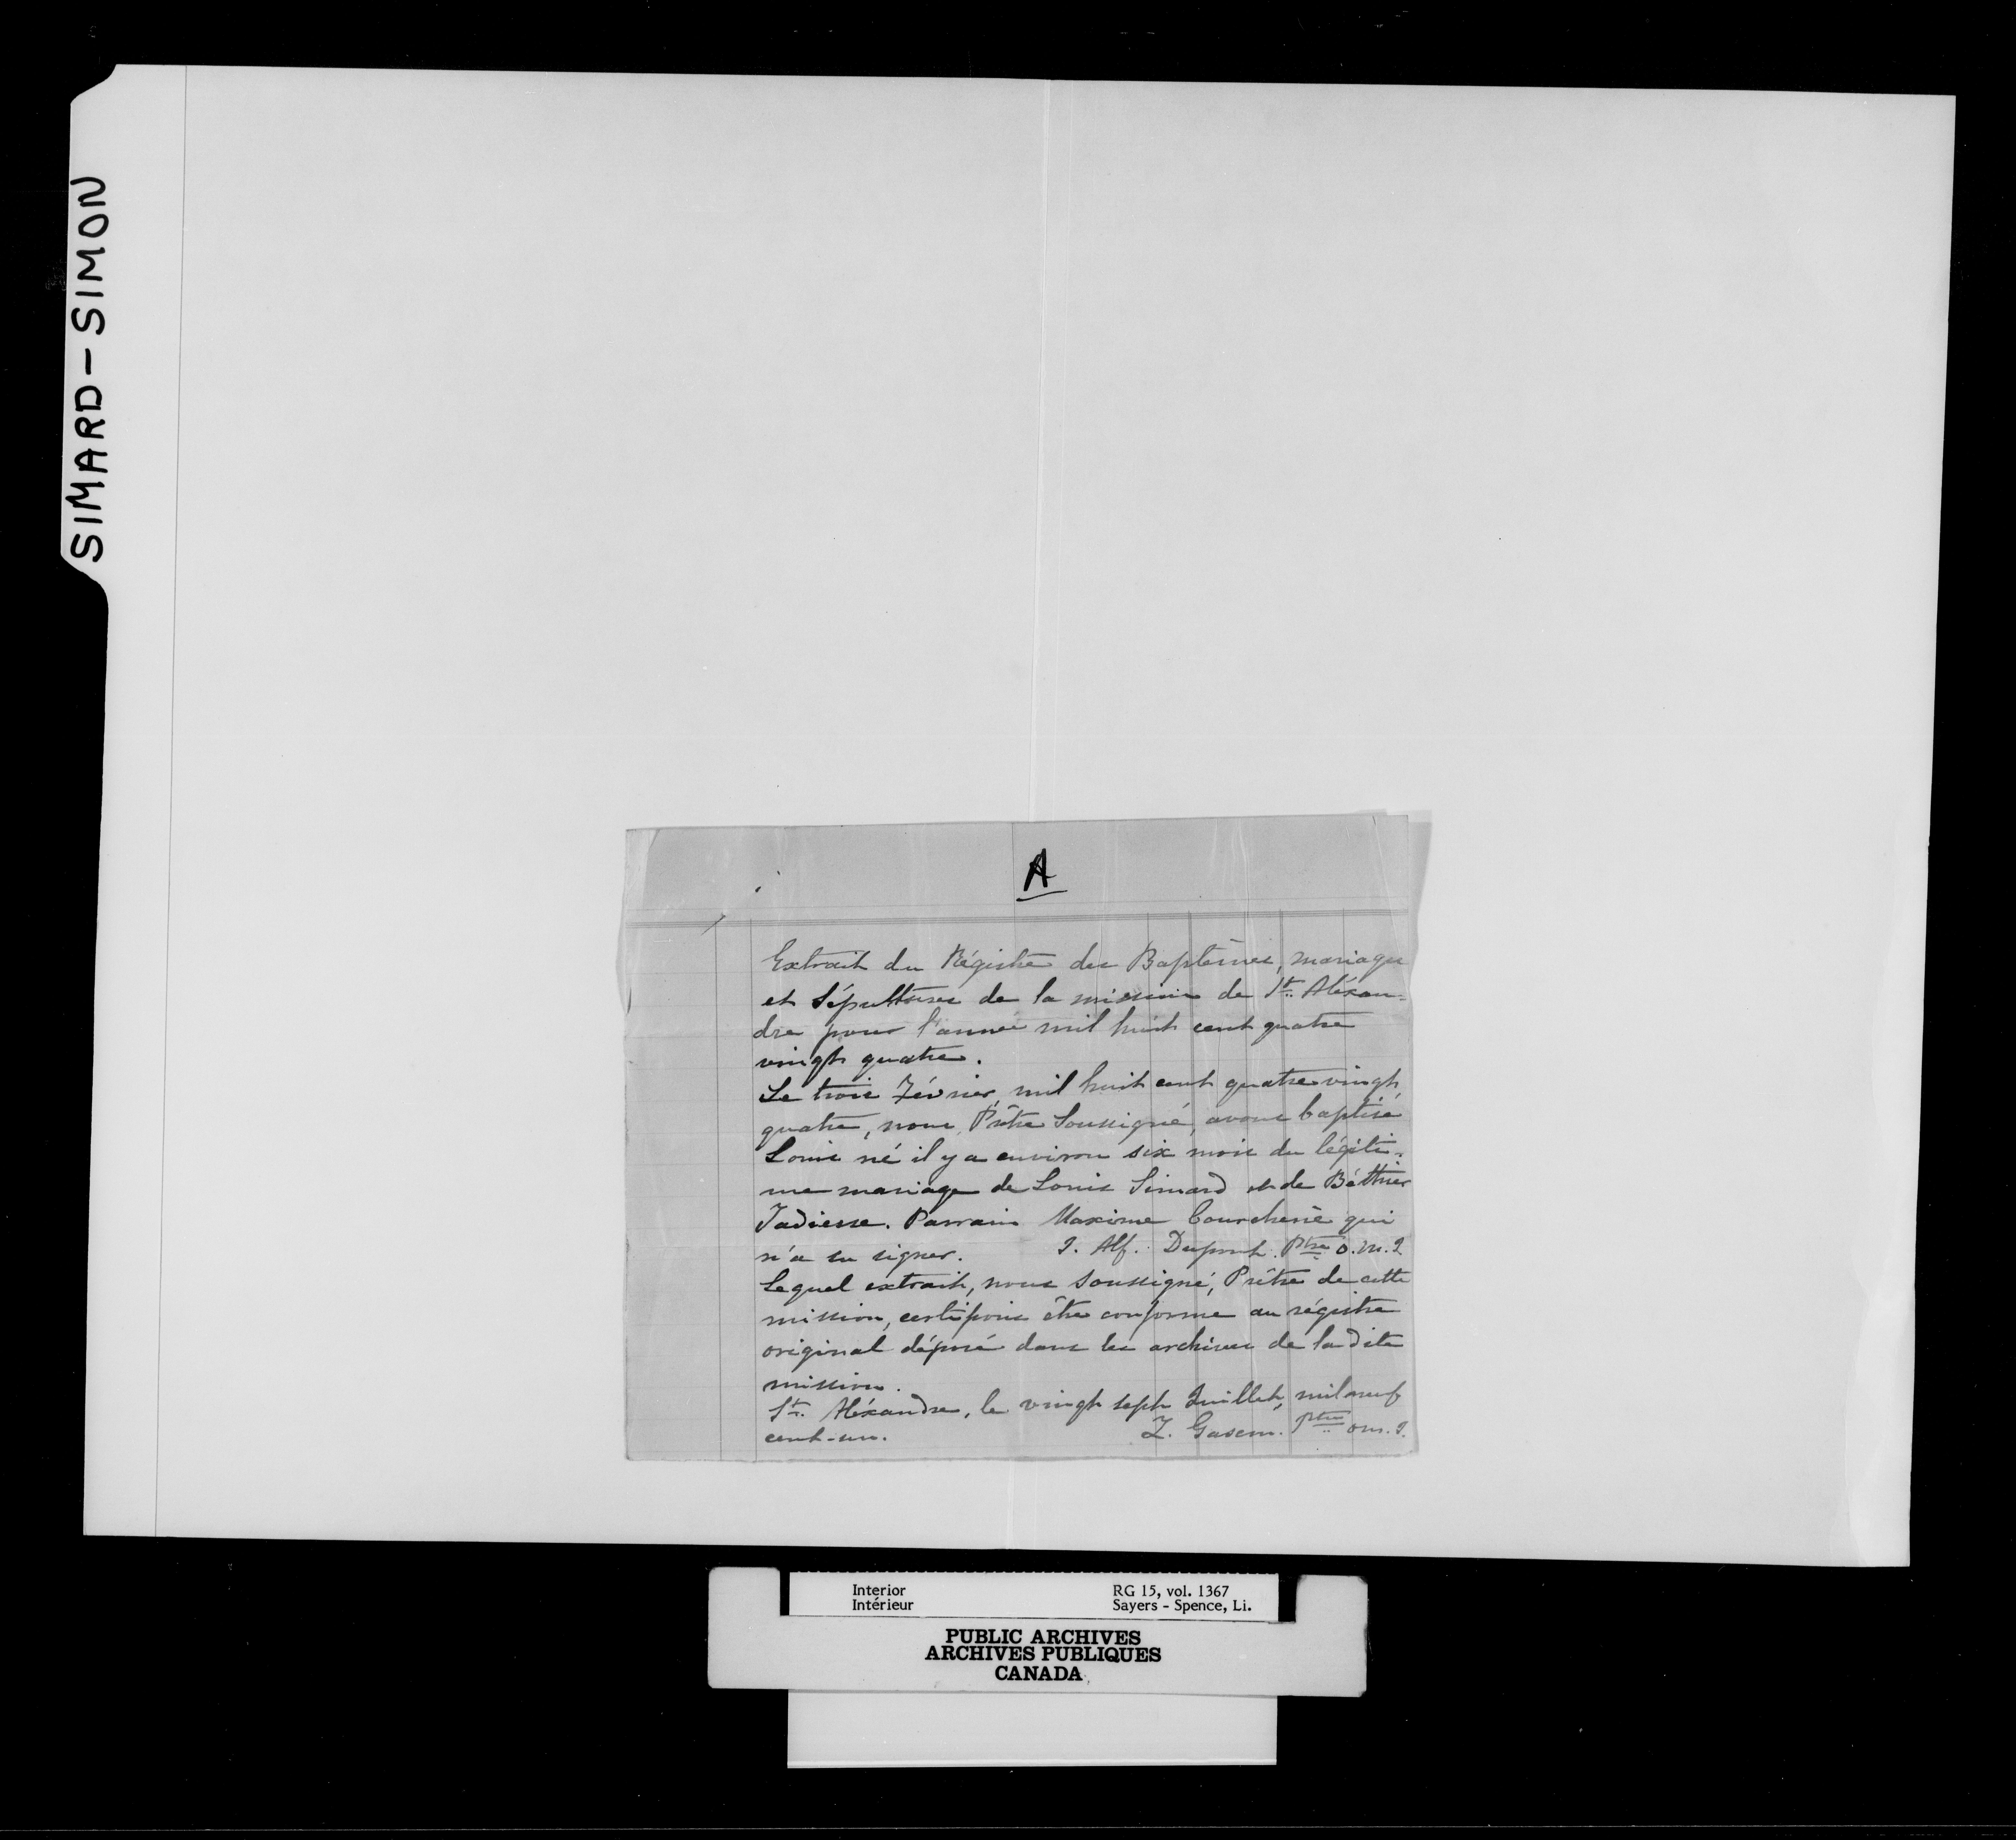 SIMARD-SIMON
A
Extrait du Régistre des Baptêmes, mariages
et Sépultures de la mission de St. Aléxan-
dre pour l'année mil huit cent quatre
vingt quatre.
Le trois Février, mil huit cent quatre vingt
quatre, nous, Prêtre Soussigné, avons baptisé
Louis né il y a environ six mois du légiti-
me mariage de Louis Simard et de
Parrain Maxime Courchene qui
n'a su signer. J. Alf. Dupont. Ptre O.M.I.
Lequel extrait, nous soussigné, Prêtre de cette
mission, certifions être conforme au régistre
original déposé dans les archives de la dite
mission.
St. Aléxandre, le vingt sept Juillet, mil neuf
cent-un. Ptre o.m.I.
Interior RG 15, vol. 1367
Intérieur Sayers - Spence, Li.
PUBLIC ARCHIVES
ARCHIVES PUBLIQUES
CANADA